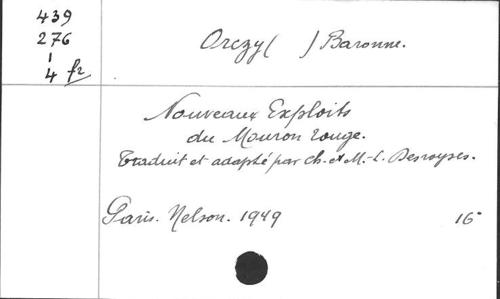 439
276
1
4 fr
Orczy ( ) Baronne.
Nouveaux Exploits
du Mouron rouge.
Traduit et adapté par Ch. et M.-L. Desroyses.
Paris. Nelson. 1949 16°